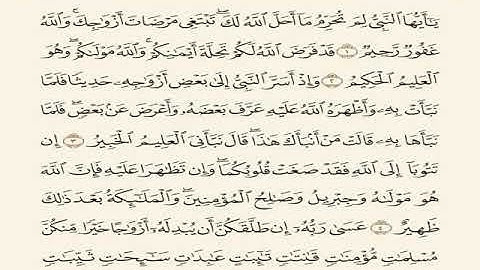 يَـٰٓأَيُّهَا ٱلنَّبِىُّ لِمَ تُحَرِّمُ مَآ أَحَلَّ ٱللَّهُ لَكَ ۖ تَبْتَغِى مَرْضَاتَ أَزْوَٰجِكَ ۚ وَٱللَّهُ
غَفُورٌ رَّحِيمٌ ١ قَدْ فَرَضَ ٱللَّهُ لَكُمْ تَحِلَّةَ أَيْمَـٰنِكُمْ ۚ وَٱللَّهُ مَوْلَىٰكُمْ ۖ وَهُوَ
ٱلْعَلِيمُ ٱلْحَكِيمُ ٢ وَإِذْ أَسَرَّ ٱلنَّبِىُّ إِلَىٰ بَعْضِ أَزْوَٰجِهِۦ حَدِيثًا فَلَمَّا
نَبَّأَتْ بِهِۦ وَأَظْهَرَهُ ٱللَّهُ عَلَيْهِ عَرَّفَ بَعْضَهُۥ وَأَعْرَضَ عَنۢ بَعْضٍ ۖ فَلَمَّا
نَبَّأَهَا بِهِۦ قَالَتْ مَنْ أَنۢبَأَكَ هَـٰذَا ۖ قَالَ نَبَّأَنِىَ ٱلْعَلِيمُ ٱلْخَبِيرُ ٣ إِن
تَتُوبَآ إِلَى ٱللَّهِ فَقَدْ صَغَتْ قُلُوبُكُمَا ۖ وَإِن تَظَـٰهَرَا عَلَيْهِ فَإِنَّ ٱللَّهَ
هُوَ مَوْلَىٰهُ وَجِبْرِيلُ وَصَـٰلِحُ ٱلْمُؤْمِنِينَ ۖ وَٱلْمَلَـٰٓئِكَةُ بَعْدَ ذَٰلِكَ
ظَهِيرٌ ٤ عَسَىٰ رَبُّهُۥٓ إِن طَلَّقَكُنَّ أَن يُبْدِلَهُۥٓ أَزْوَٰجًا خَيْرًا مِّنكُنَّ
مُسْلِمَـٰتٍ مُّؤْمِنَـٰتٍ قَـٰنِتَـٰتٍ تَـٰٓئِبَـٰتٍ عَـٰبِدَٰتٍ سَـٰٓئِحَـٰتٍ ثَيِّبَـٰتٍ